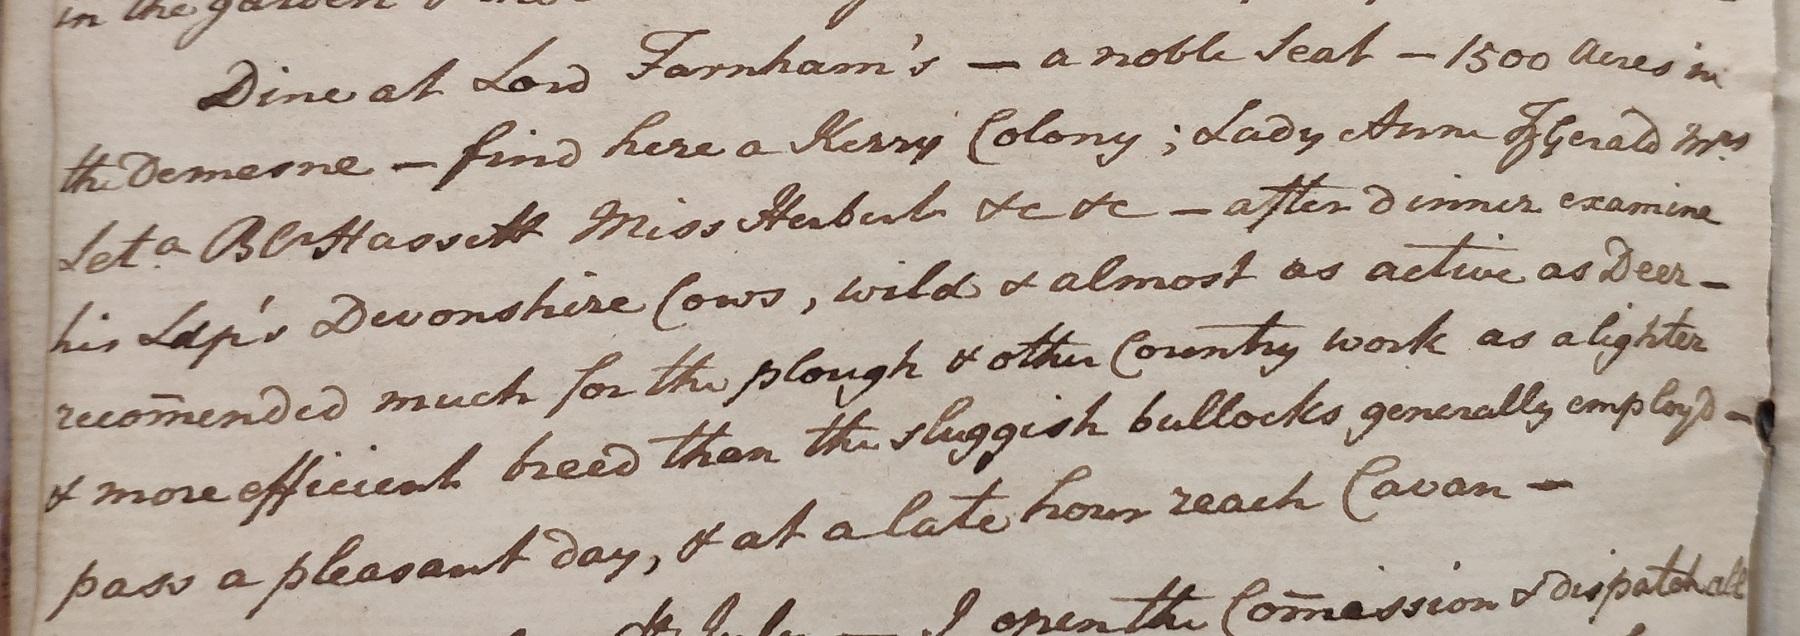 in the garden
Dine at Lord Farnham's — a noble Seat — 1500 Acres in
the Demesne — find here a Kerry Colony ; Lady Anne FzGerald Mrs
Leta BlHassett Miss Herbert &c &c — after dinner examine
his Ldp's Devonshire Cows, wild & almost as active as Deer —
recom̄ended much for the plough & other Country work as a lighter
& more efficient breed than the sluggish bullocks generally employ'd —
pass a pleasant day, & at a late hour reach Cavan —
July — I open the Com̄ission & dispatch all